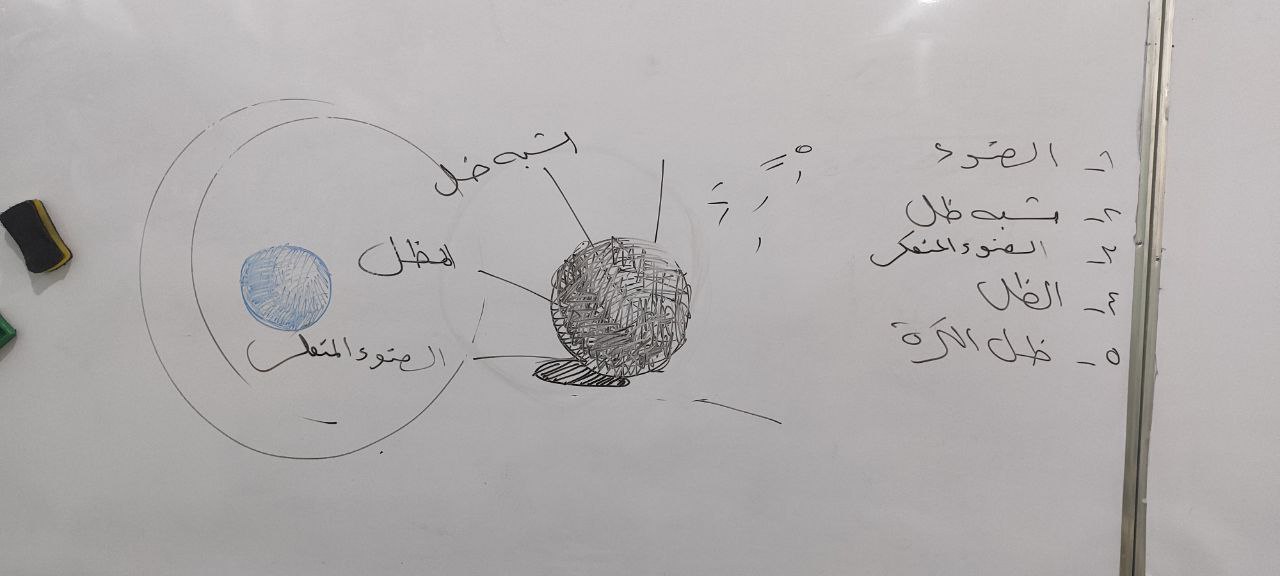 ١- الضوء
٢- شبه ظل
٣- الضوء المنعكس
٤- الظل
٥- ظل الكرة
الشبه ظل
الظل
الضوء المنعكس